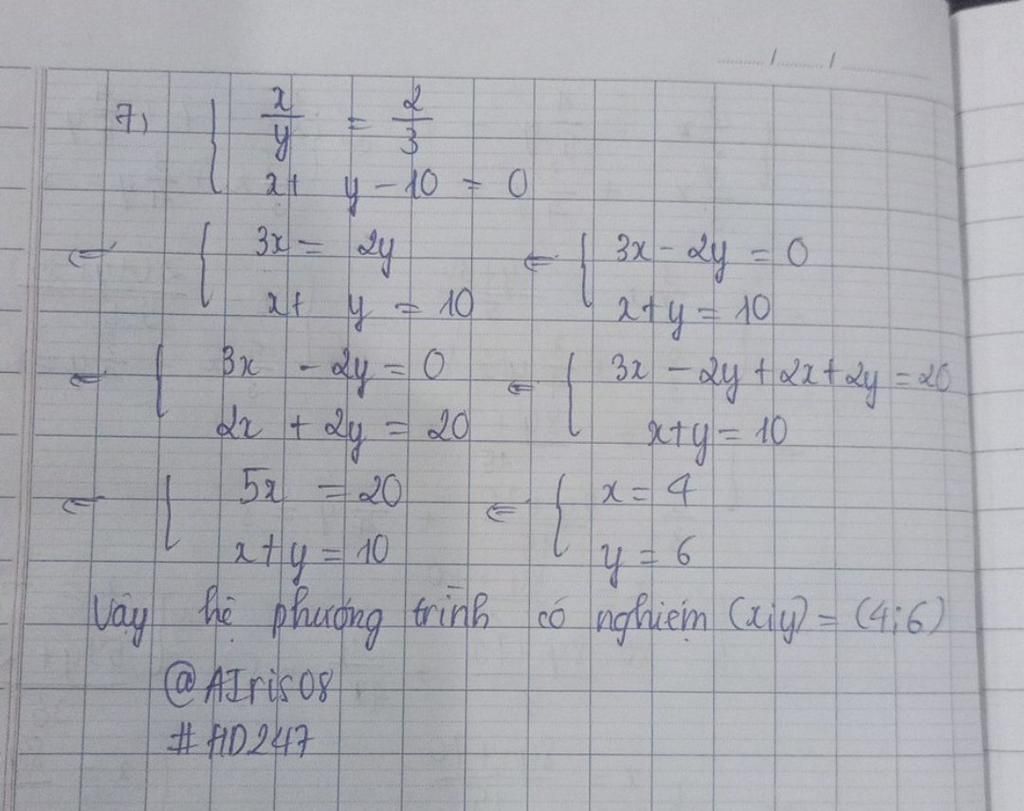 7, { x/y = 2/3
x + y - 10 = 0
⇐ { 3x = 2y ⇐ { 3x - 2y = 0
x + y = 10 x + y = 10
⇐ { 3x - 2y = 0 ⇐ { 3x - 2y + 2x + 2y = 20
2x + 2y = 20 x + y = 10
⇐ { 5x = 20 ⇐ { x = 4
x + y = 10 y = 6
Vậy hệ phương trình có nghiệm (x;y) = (4;6)
@AIris08
#HD247